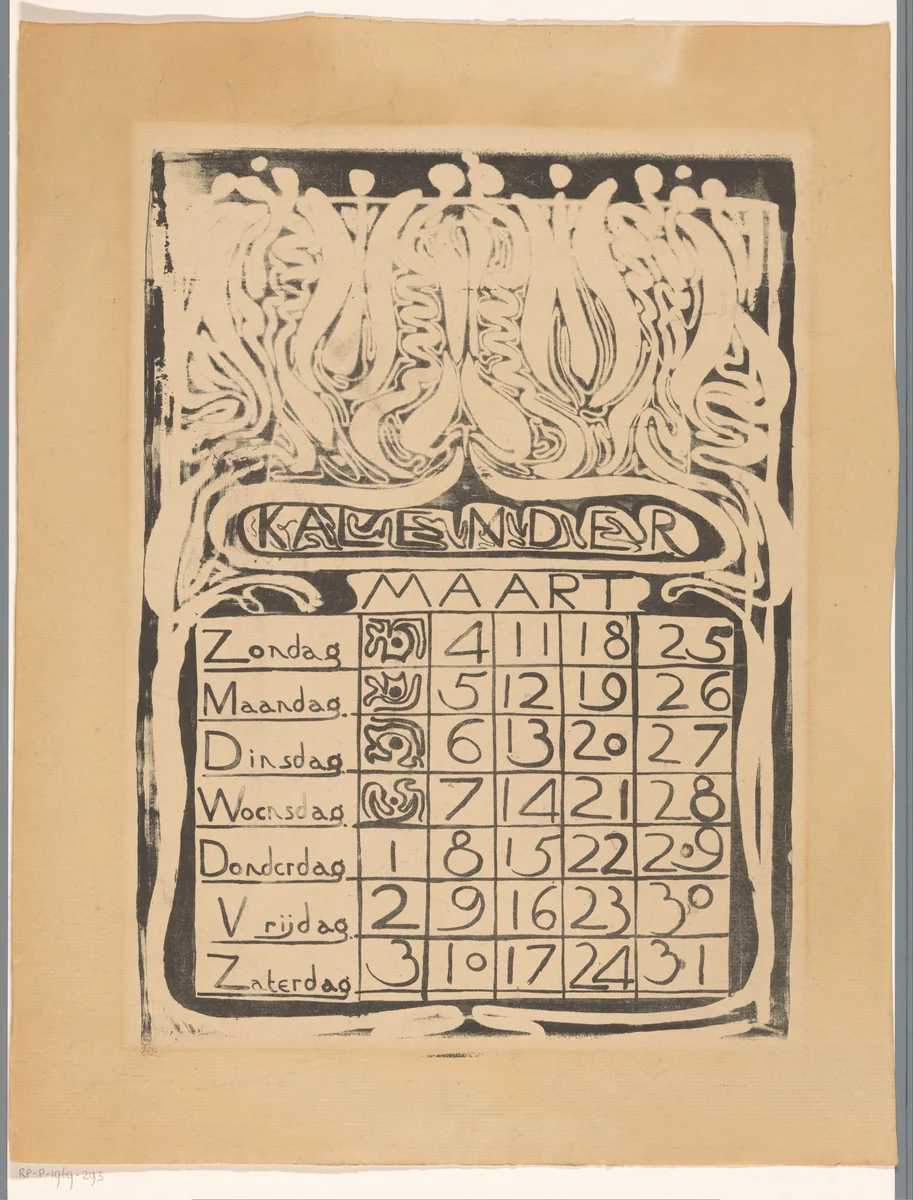 KALENDER
MAART
Zondag 4 11 18 25
Maandag 5 12 19 26
Dinsdag 6 13 20 27
Woensdag 7 14 21 28
Donderdag 1 8 15 22 29
Vrijdag 2 9 16 23 30
Zaterdag 3 10 17 24 31
RP-P-1969-293